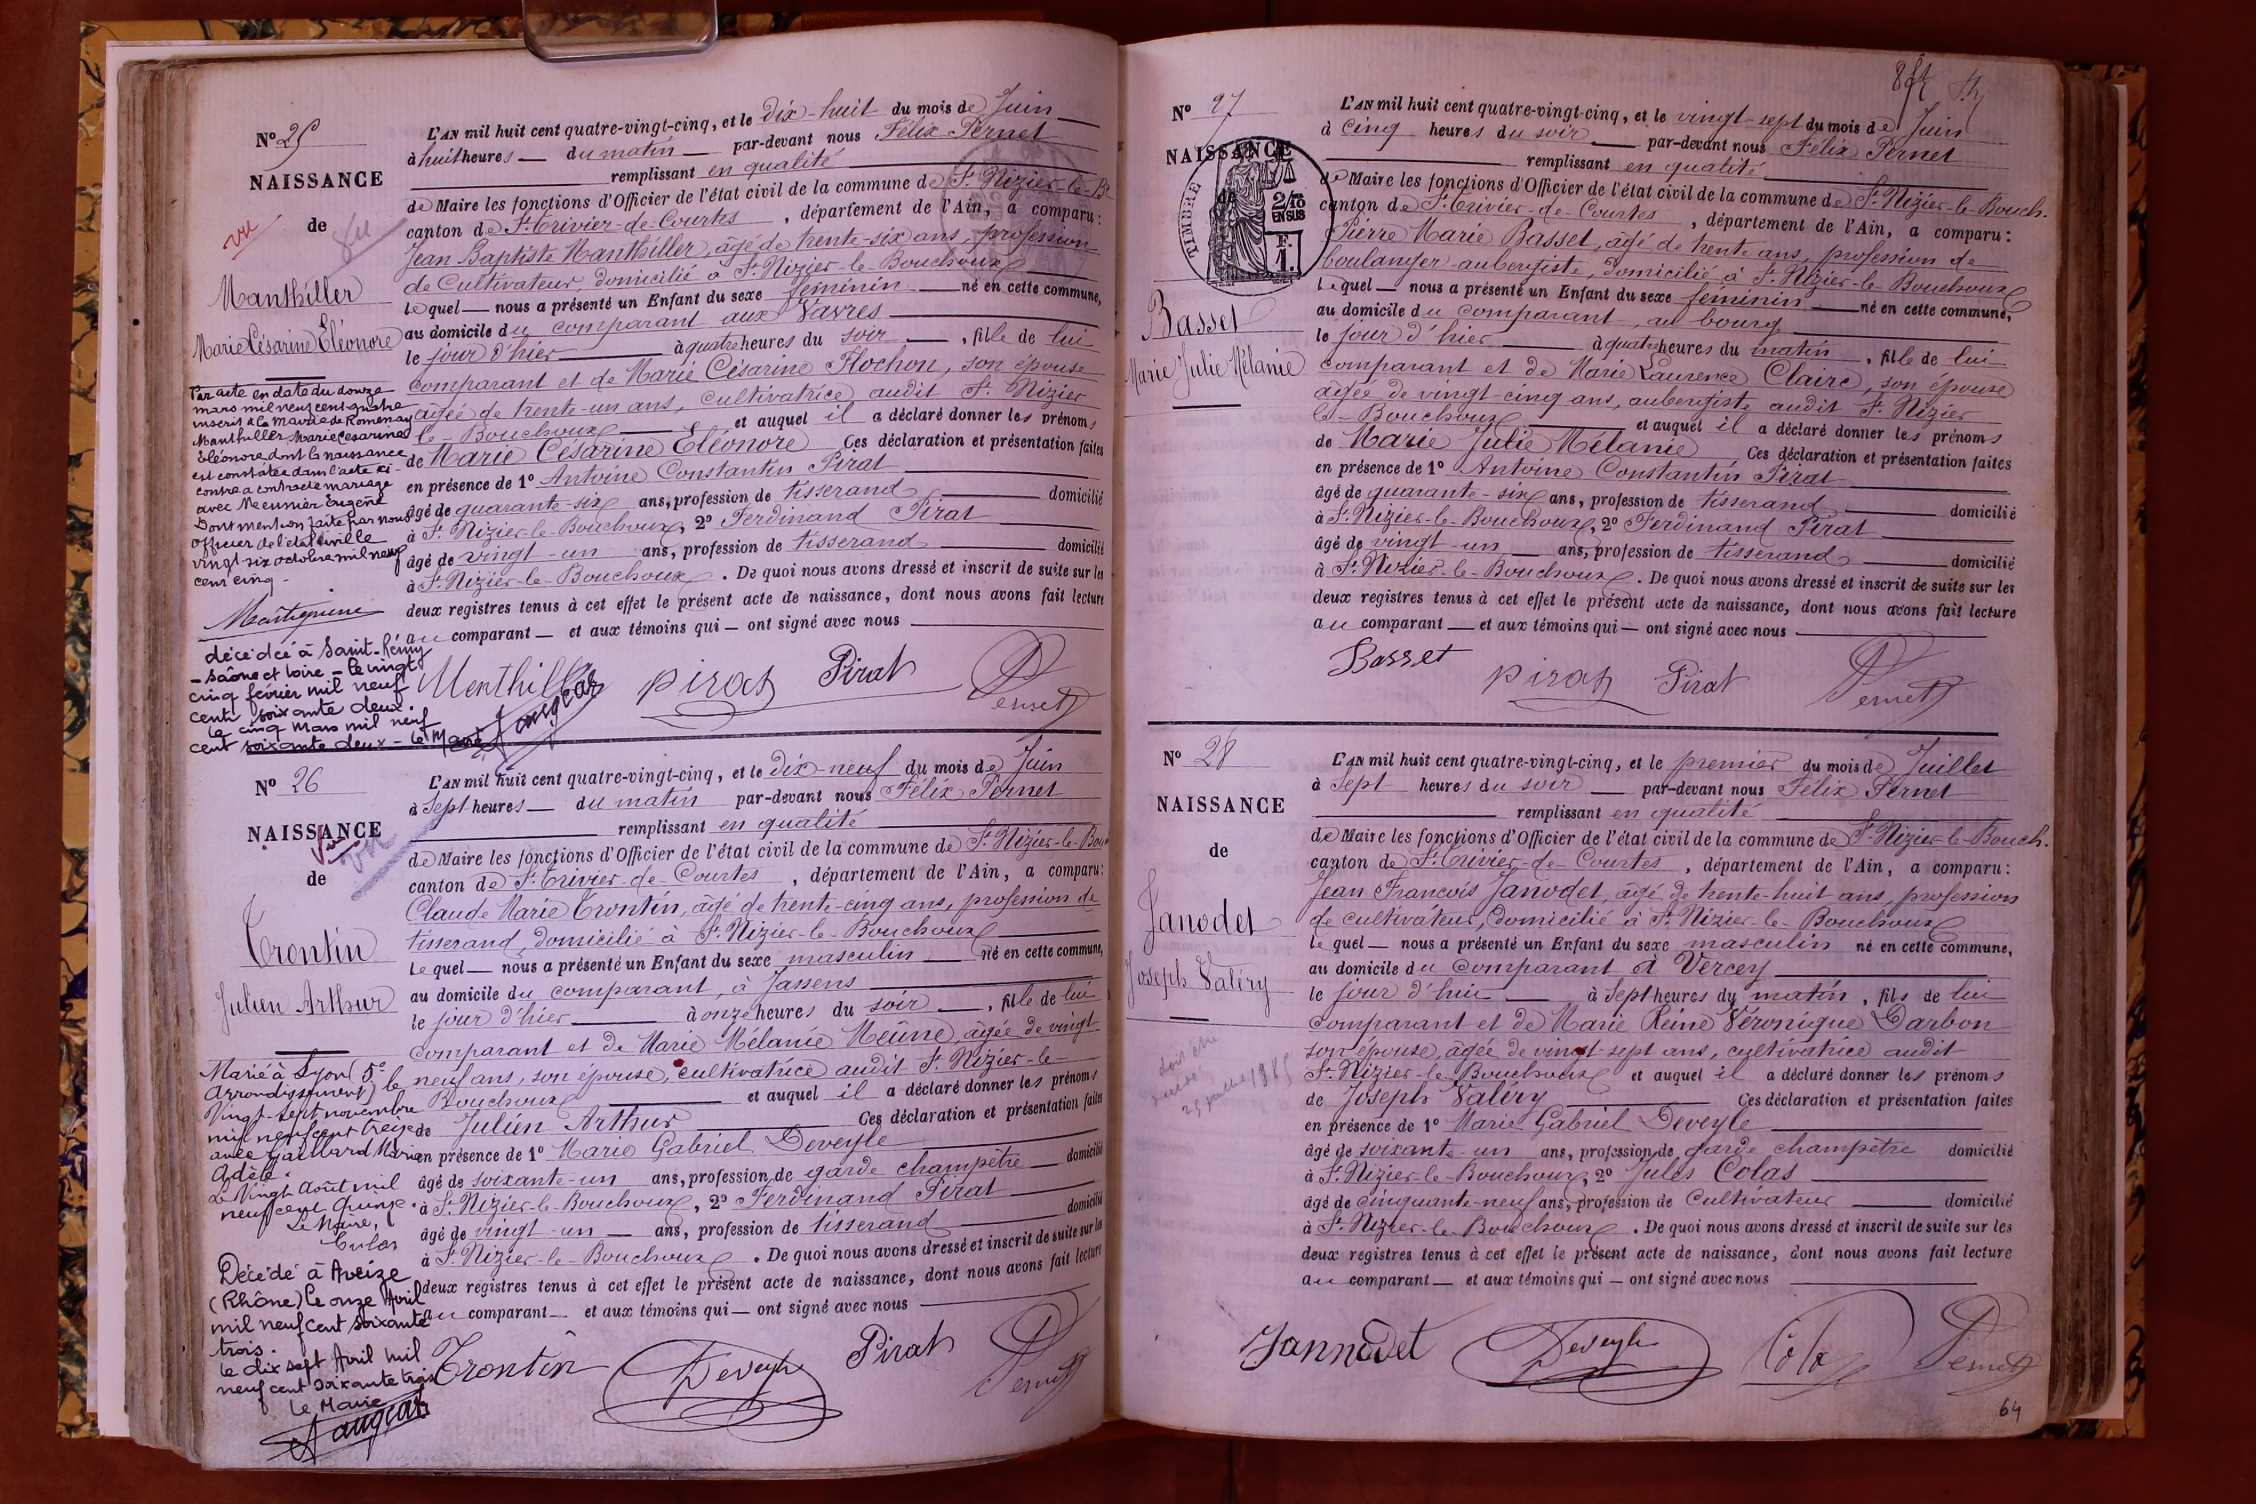 N° 25
NAISSANCE
de
vu
Manthiller
Marie Césarine Eléonore
Par acte en date du douze
mars mil neuf cent quatre
inscrit à la Mairie de Romenay
Manthiller Marie Césarine
Eléonore, dont la naissance
est constatée dans l'acte ci-
contre a contracté mariage
avec Meunier Eugène
Dont mention faite par nous
officier de l'état civil le
vingt six octobre mil neuf
cent cinq -
décédée à Saint-Rémy
- Saône et Loire - le vingt
cinq février mil neuf
cent soixante deux.
le cinq Mars mil neuf
cent soixante deux - le Maire
L'AN mil huit cent quatre-vingt-cinq, et le dix-huit du mois de Juin
à huit heures du matin par-devant nous Félix Pernet
remplissant en qualité
de Maire les fonctions d'Officier de l'état civil de la commune de St Nizier-le-Bt
canton de St Trivier-de-Courtes, département de l'Ain, a comparu:
Jean Baptiste Manthiller, âgé de trente-six ans, profession
de Cultivateur, domicilié à St Nizier-le-Bouchoux
lequel nous a présenté un Enfant du sexe féminin né en cette commune,
au domicile du comparant aux Vavres
le jour d'hier à quatre heures du soir, fille de lui
comparant et de Marie Césarine Flochon, son épouse
âgée de trente-un ans, cultivatrice audit St Nizier
le-Bouchoux et auquel il a déclaré donner les prénoms
de Marie Césarine Eléonore Ces déclaration et présentation faites
en présence de 1° Antoine Constantin Pirat
âgé de quarante-six ans, profession de tisserand domicilié
à St Nizier-le-Bouchoux, 2° Ferdinand Pirat
âgé de vingt-un ans, profession de tisserand domicilié
à St Nizier-le-Bouchoux. De quoi nous avons dressé et inscrit de suite sur les
deux registres tenus à cet effet le présent acte de naissance, dont nous avons fait lecture
au comparant et aux témoins qui ont signé avec nous
Menthiller Pirat Pirat Pernet
N° 26
NAISSANCE
de
Vu
Trontin
Julien Arthur
Marié à Lyon (5e
Arrondissement) le
Vingt-sept novembre
mil neuf cent treize
avec Gaillard Maria
Adèle.
Le Vingt Août mil
neuf cent quinze.
Le Maire,
Colas
Décédé à Aveize
(Rhône) le onze Avril
mil neuf cent soixante
trois.
le dix sept Avril mil
neuf cent soixante trois
le Maire
L'AN mil huit cent quatre-vingt-cinq, et le dix-neuf du mois de Juin
à Sept heures du matin par-devant nous Félix Pernet
remplissant en qualité
de Maire les fonctions d'Officier de l'état civil de la commune de St Nizier-le-Bou
canton de St Trivier-de-Courtes, département de l'Ain, a comparu:
Claude Marie Trontin, âgé de trente-cinq ans, profession de
tisserand, domicilié à St Nizier-le-Bouchoux
lequel nous a présenté un Enfant du sexe masculin né en cette commune,
au domicile du comparant, à Jassens
le jour d'hier à onze heures du soir, fille de lui
comparant et de Marie Mélanie Meüne, âgée de vingt
neuf ans, son épouse, cultivatrice audit St Nizier-le-
Bouchoux et auquel il a déclaré donner les prénoms
de Julien Arthur Ces déclaration et présentation faites
en présence de 1° Marie Gabriel Deveyle
âgé de soixante-un ans, profession de garde champêtre domicilié
à St Nizier-le-Bouchoux, 2° Ferdinand Pirat
âgé de vingt-un ans, profession de tisserand domicilié
à St Nizier-le-Bouchoux. De quoi nous avons dressé et inscrit de suite sur les
deux registres tenus à cet effet le présent acte de naissance, dont nous avons fait lecture
au comparant et aux témoins qui ont signé avec nous
Trontin Deveyle Pirat Pernet
N° 27
NAISSANCE
de
TIMBRE
2/10
EN SUS
F.
1.
Basset
Marie Julie Mélanie
L'AN mil huit cent quatre-vingt-cinq, et le vingt-sept du mois de Juin
à Cinq heures du soir par-devant nous Félix Pernet
remplissant en qualité
de Maire les fonctions d'Officier de l'état civil de la commune de St Nizier-le-Bouch.
canton de St Trivier-de-Courtes, département de l'Ain, a comparu:
Pierre Marie Basset, âgé de trente ans, profession de
boulanger-aubergiste, domicilié à St Nizier-le-Bouchoux
lequel nous a présenté un Enfant du sexe féminin né en cette commune,
au domicile du comparant, au bourg
le jour d'hier à quatre heures du matin, fille de lui
comparant et de Marie Laurence Claire, son épouse
âgée de vingt-cinq ans, aubergiste audit St Nizier
le-Bouchoux et auquel il a déclaré donner les prénoms
de Marie Julie Mélanie Ces déclaration et présentation faites
en présence de 1° Antoine Constantin Pirat
âgé de quarante-six ans, profession de tisserand domicilié
à St Nizier-le-Bouchoux, 2° Ferdinand Pirat
âgé de vingt-un ans, profession de tisserand domicilié
à St Nizier-le-Bouchoux. De quoi nous avons dressé et inscrit de suite sur les
deux registres tenus à cet effet le présent acte de naissance, dont nous avons fait lecture
au comparant et aux témoins qui ont signé avec nous
Basset Pirat Pirat Pernet
N° 28
NAISSANCE
de
Janodet
Joseph Valéry
L'AN mil huit cent quatre-vingt-cinq, et le premier du mois de Juillet
à Sept heures du soir par-devant nous Félix Pernet
remplissant en qualité
de Maire les fonctions d'Officier de l'état civil de la commune de St Nizier-le-Bouch.
canton de St Trivier-de-Courtes, département de l'Ain, a comparu:
Jean François Janodet, âgé de trente-huit ans, profession
de cultivateur, domicilié à St Nizier-le-Bouchoux
lequel nous a présenté un Enfant du sexe masculin né en cette commune,
au domicile du comparant à Vercey
le jour d'hui à Sept heures du matin, fils de lui
comparant et de Marie Reine Véronique Darbon
son épouse, âgée de vingt-sept ans, cultivatrice audit
St Nizier-le-Bouchoux et auquel il a déclaré donner les prénoms
de Joseph Valéry Ces déclaration et présentation faites
en présence de 1° Marie Gabriel Deveyle
âgé de soixante-un ans, profession de garde champêtre domicilié
à St Nizier-le-Bouchoux, 2° Jules Colas
âgé de cinquante-neuf ans, profession de Cultivateur domicilié
à St Nizier-le-Bouchoux. De quoi nous avons dressé et inscrit de suite sur les
deux registres tenus à cet effet le présent acte de naissance, dont nous avons fait lecture
au comparant et aux témoins qui ont signé avec nous
Jannodet Deveyle Colas Pernet
64